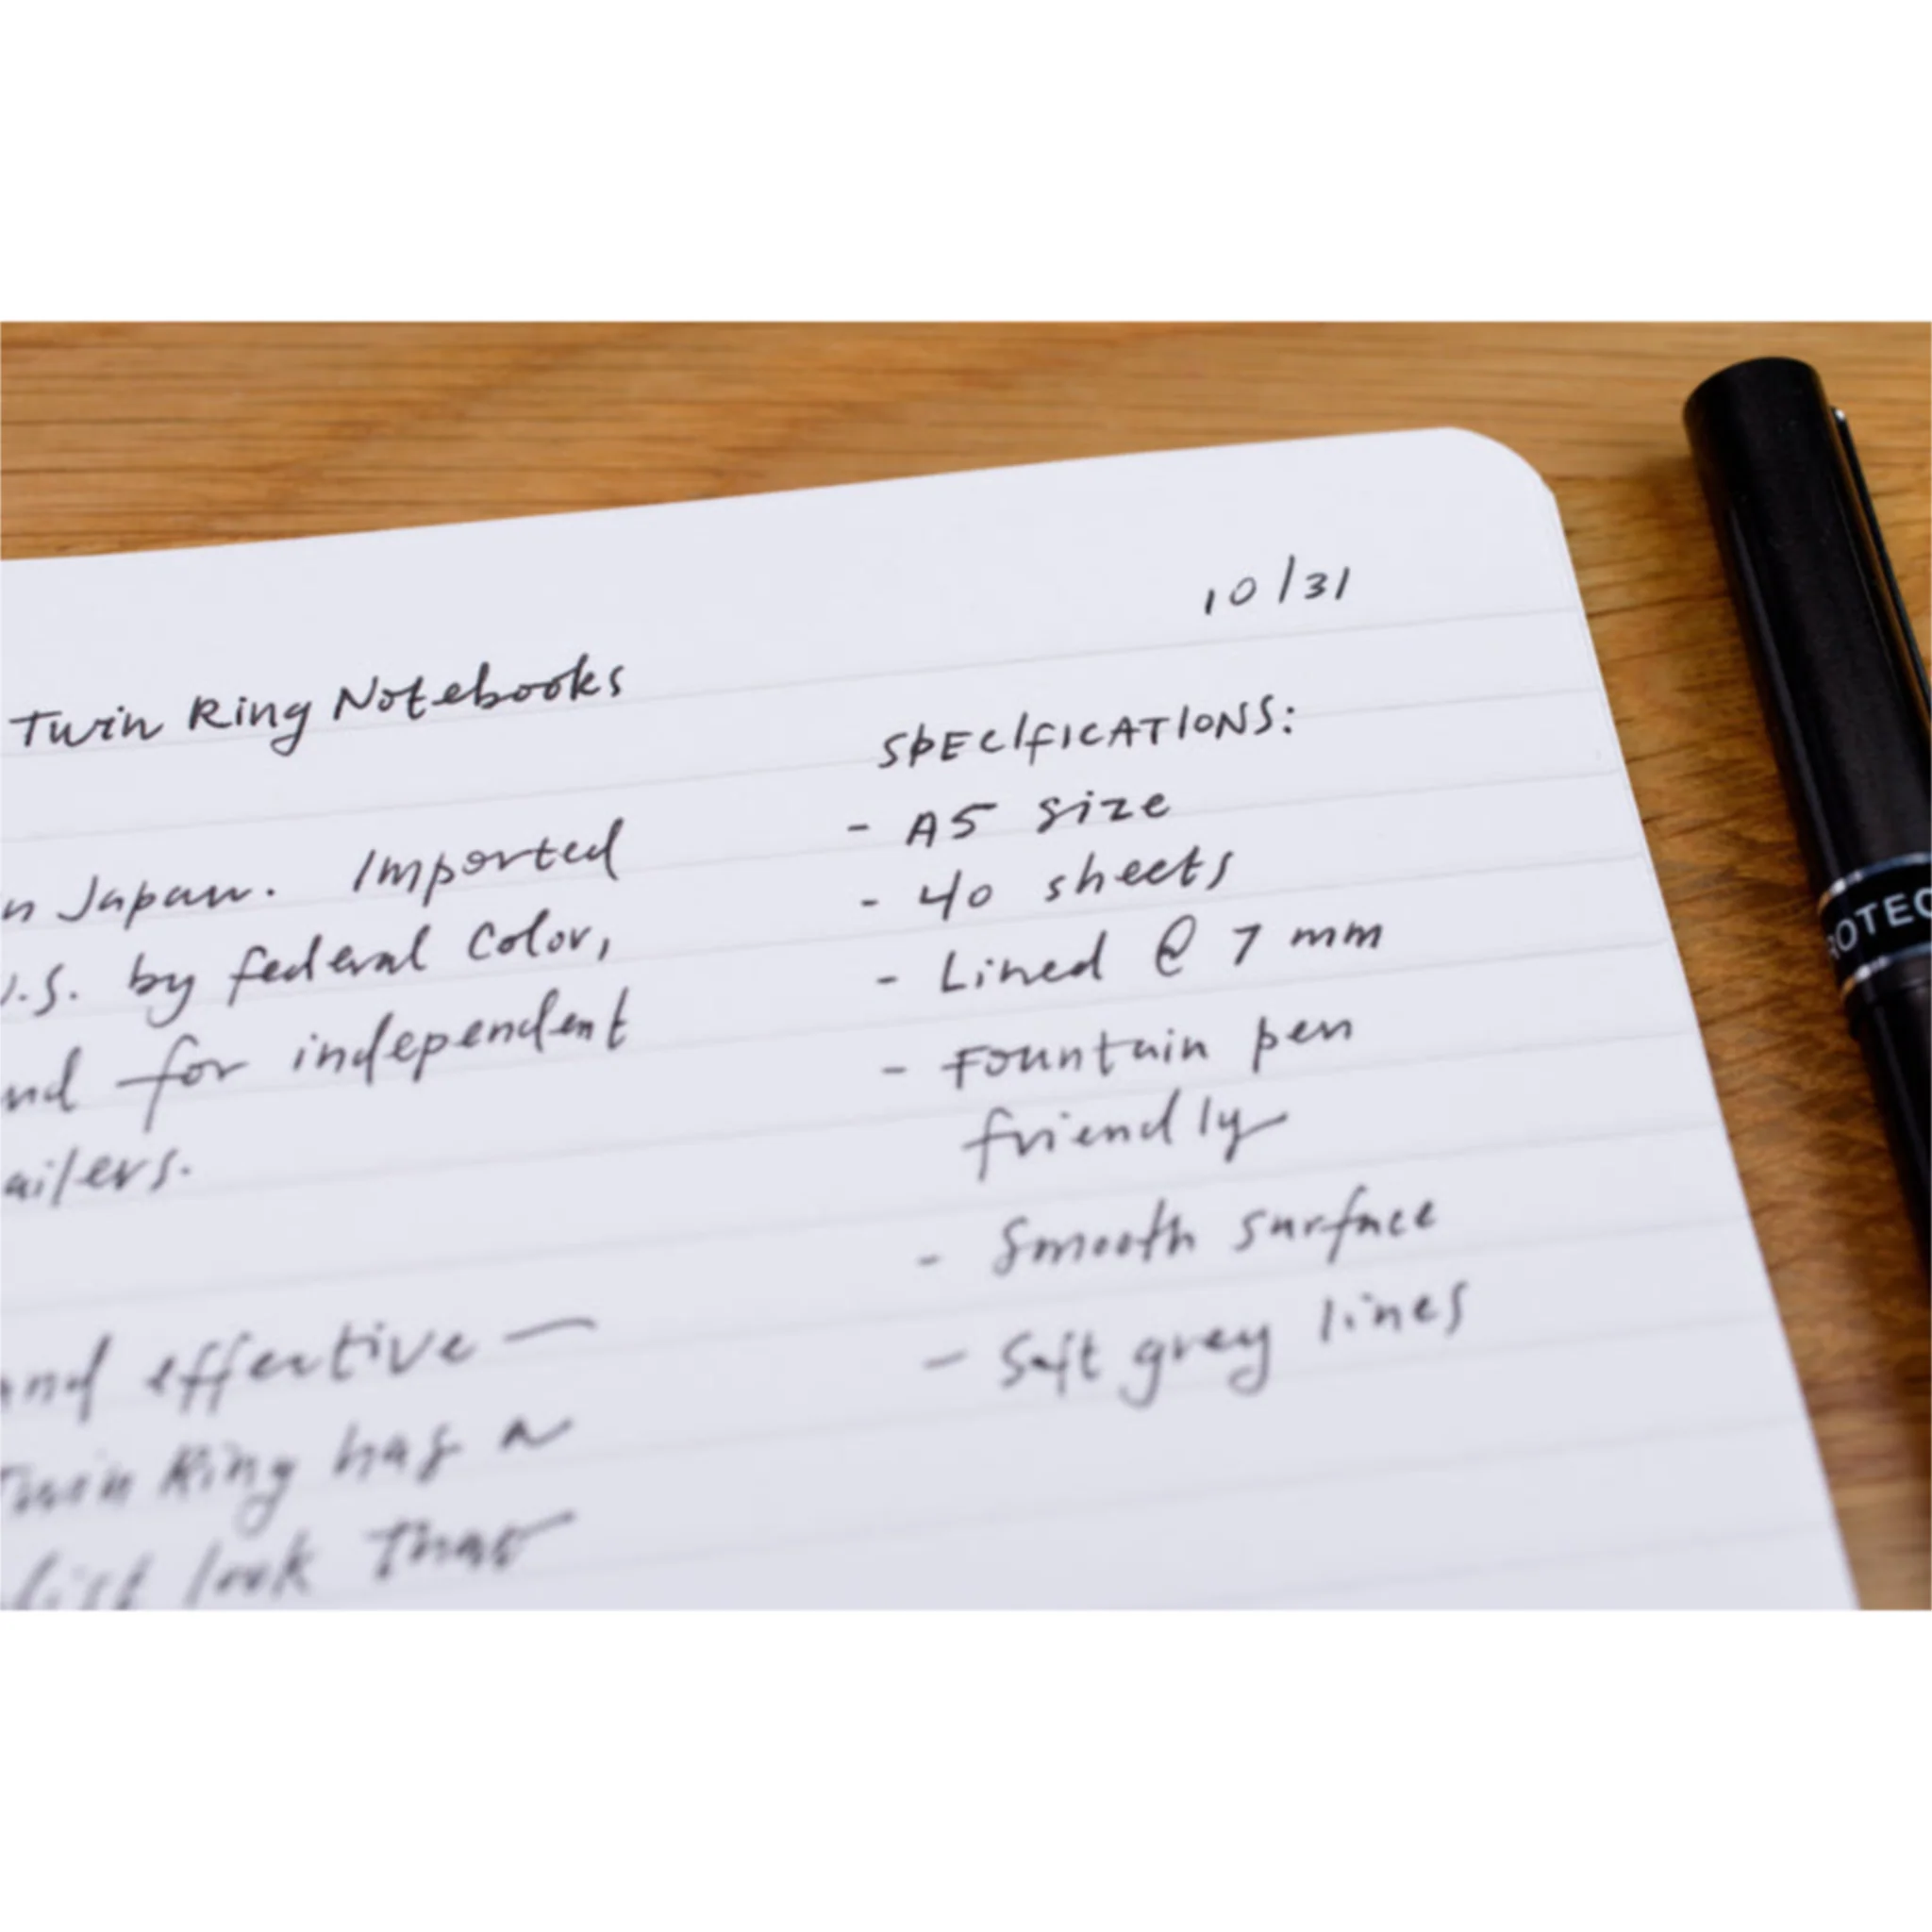 10/31
Twin Ring Notebooks
n Japan. Imported
U.S. by federal Color,
nd for independent
ailers.
and effective —
Twin Ring has a
list look that
SPECIFICATIONS:
- A5 size
- 40 sheets
- Lined @ 7 mm
- Fountain pen
friendly
- Smooth surface
- Soft grey lines
ROTEC